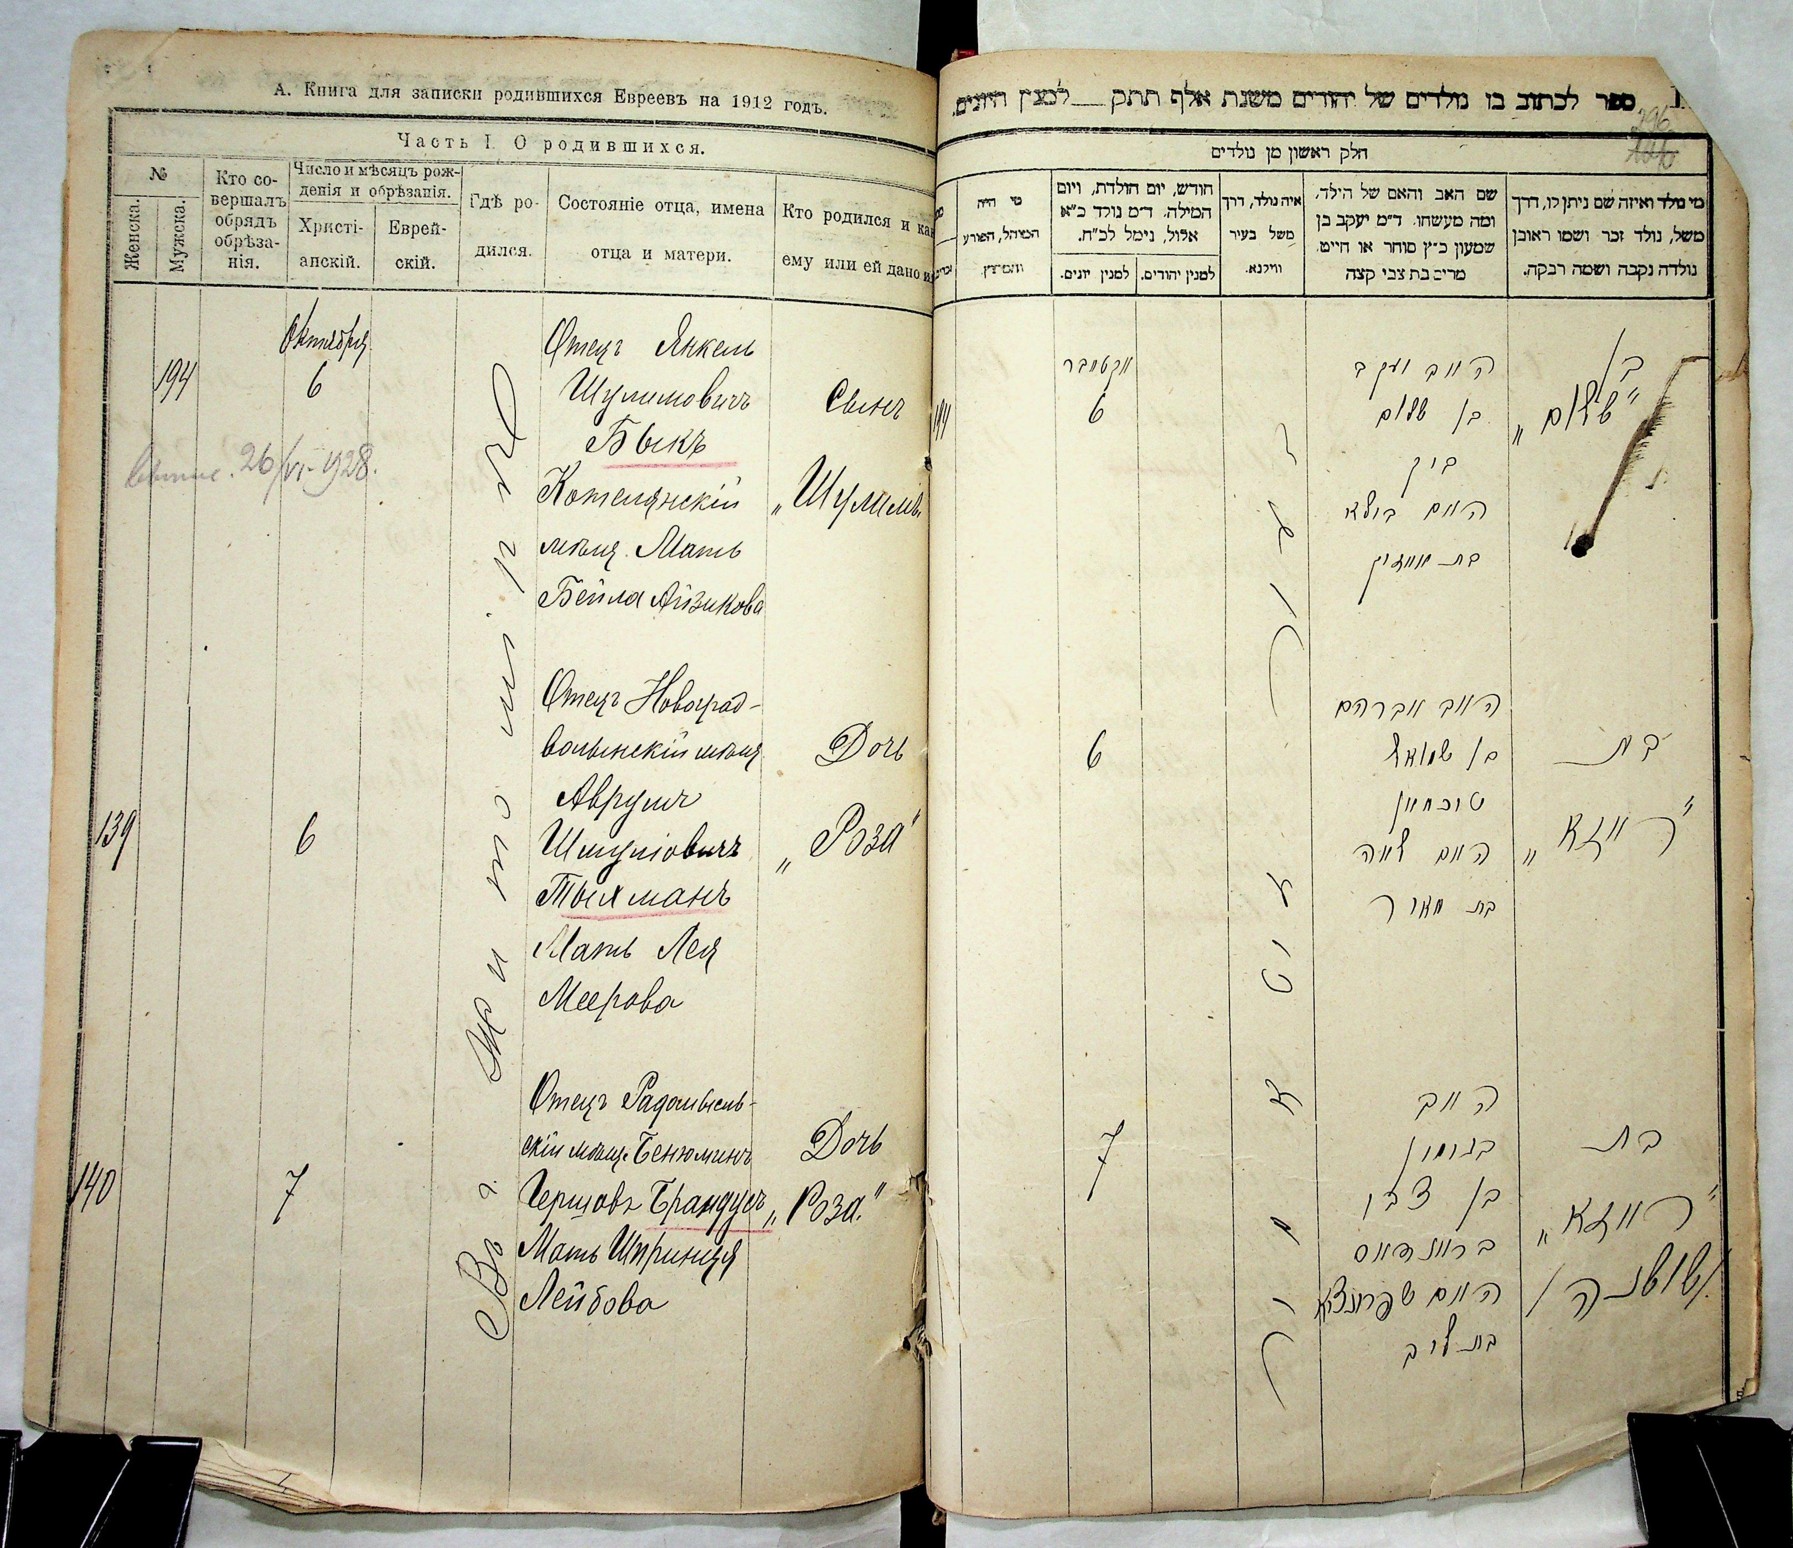 А. Книга для записки родившихся Евреевъ на 1912 годъ.
Часть I. О родившихся.
№
Женска.
Мужска.
Кто со-
вершалъ
обрядъ
обрѣза-
нія.
Число и мѣсяцъ рож-
денія и обрѣзанія.
Христі-
анскій.
Еврей-
скій.
Гдѣ ро-
дился.
Состояніе отца, имена
отца и матери.
Кто родился и как
ему или ей дано и
194
Октября
6
26/VI-1928.
Въ г. Житомірѣ
Отецъ Янкель
Шулимовичъ
Быкъ
Котелянскій
мѣщ. Мать
Бейла Айзикова
Сынъ
„Шулимъ
139
6
Отецъ Новоград-
волынскій мѣщ.
Аврумъ
Шмуліовичъ
Тыхманъ
Мать Лея
Меерова
Дочь
„Роза"
140
7
Отецъ Радомысль-
скій мѣщ. Бенюминъ
Гершовъ Брандусъ
Мать Шпринця
Лейбова
Дочь
„Роза."
ספר לכתוב בו נולדים של יהודים משנת אלף תתק למנין היונים.
196
חלק ראשון מן נולדים
מי נולד ואיזה שם ניתן לו, דרך
משל, נולד זכר ושמו ראובן
נולדה נקבה ושמה רבקה.
שם האב והאם של הילד,
ומה מעשהו. ד״מ יעקב בן
שמעון כ״ץ סוחר או חייט.
מרים בת צבי קצה
איה נולד, דרך
משל בעיר
ווילנא.
חודש, יום הולדת, ויום
המילה. ד״מ נולד כ״א
אלול, נימל לכ״ח.
למנין יהודים.
למנין יונים.
מי היה
המוהל, הפורע
והמוצץ.
בן
„שלום"
האב יעקב
בן שלום
ביק
האם ביילא
בת אייזיק
אקטאבר
6
194
זיטאמיר
בת
„ראזא"
האב אברהם
בן שמואל
טוכמאן
האם לאה
בת מאיר
6
בת
„ראזא"
/שושנה/
האב
בנימין
בן צבי
בראנדוס
האם שפרינצא
בת ליב
7